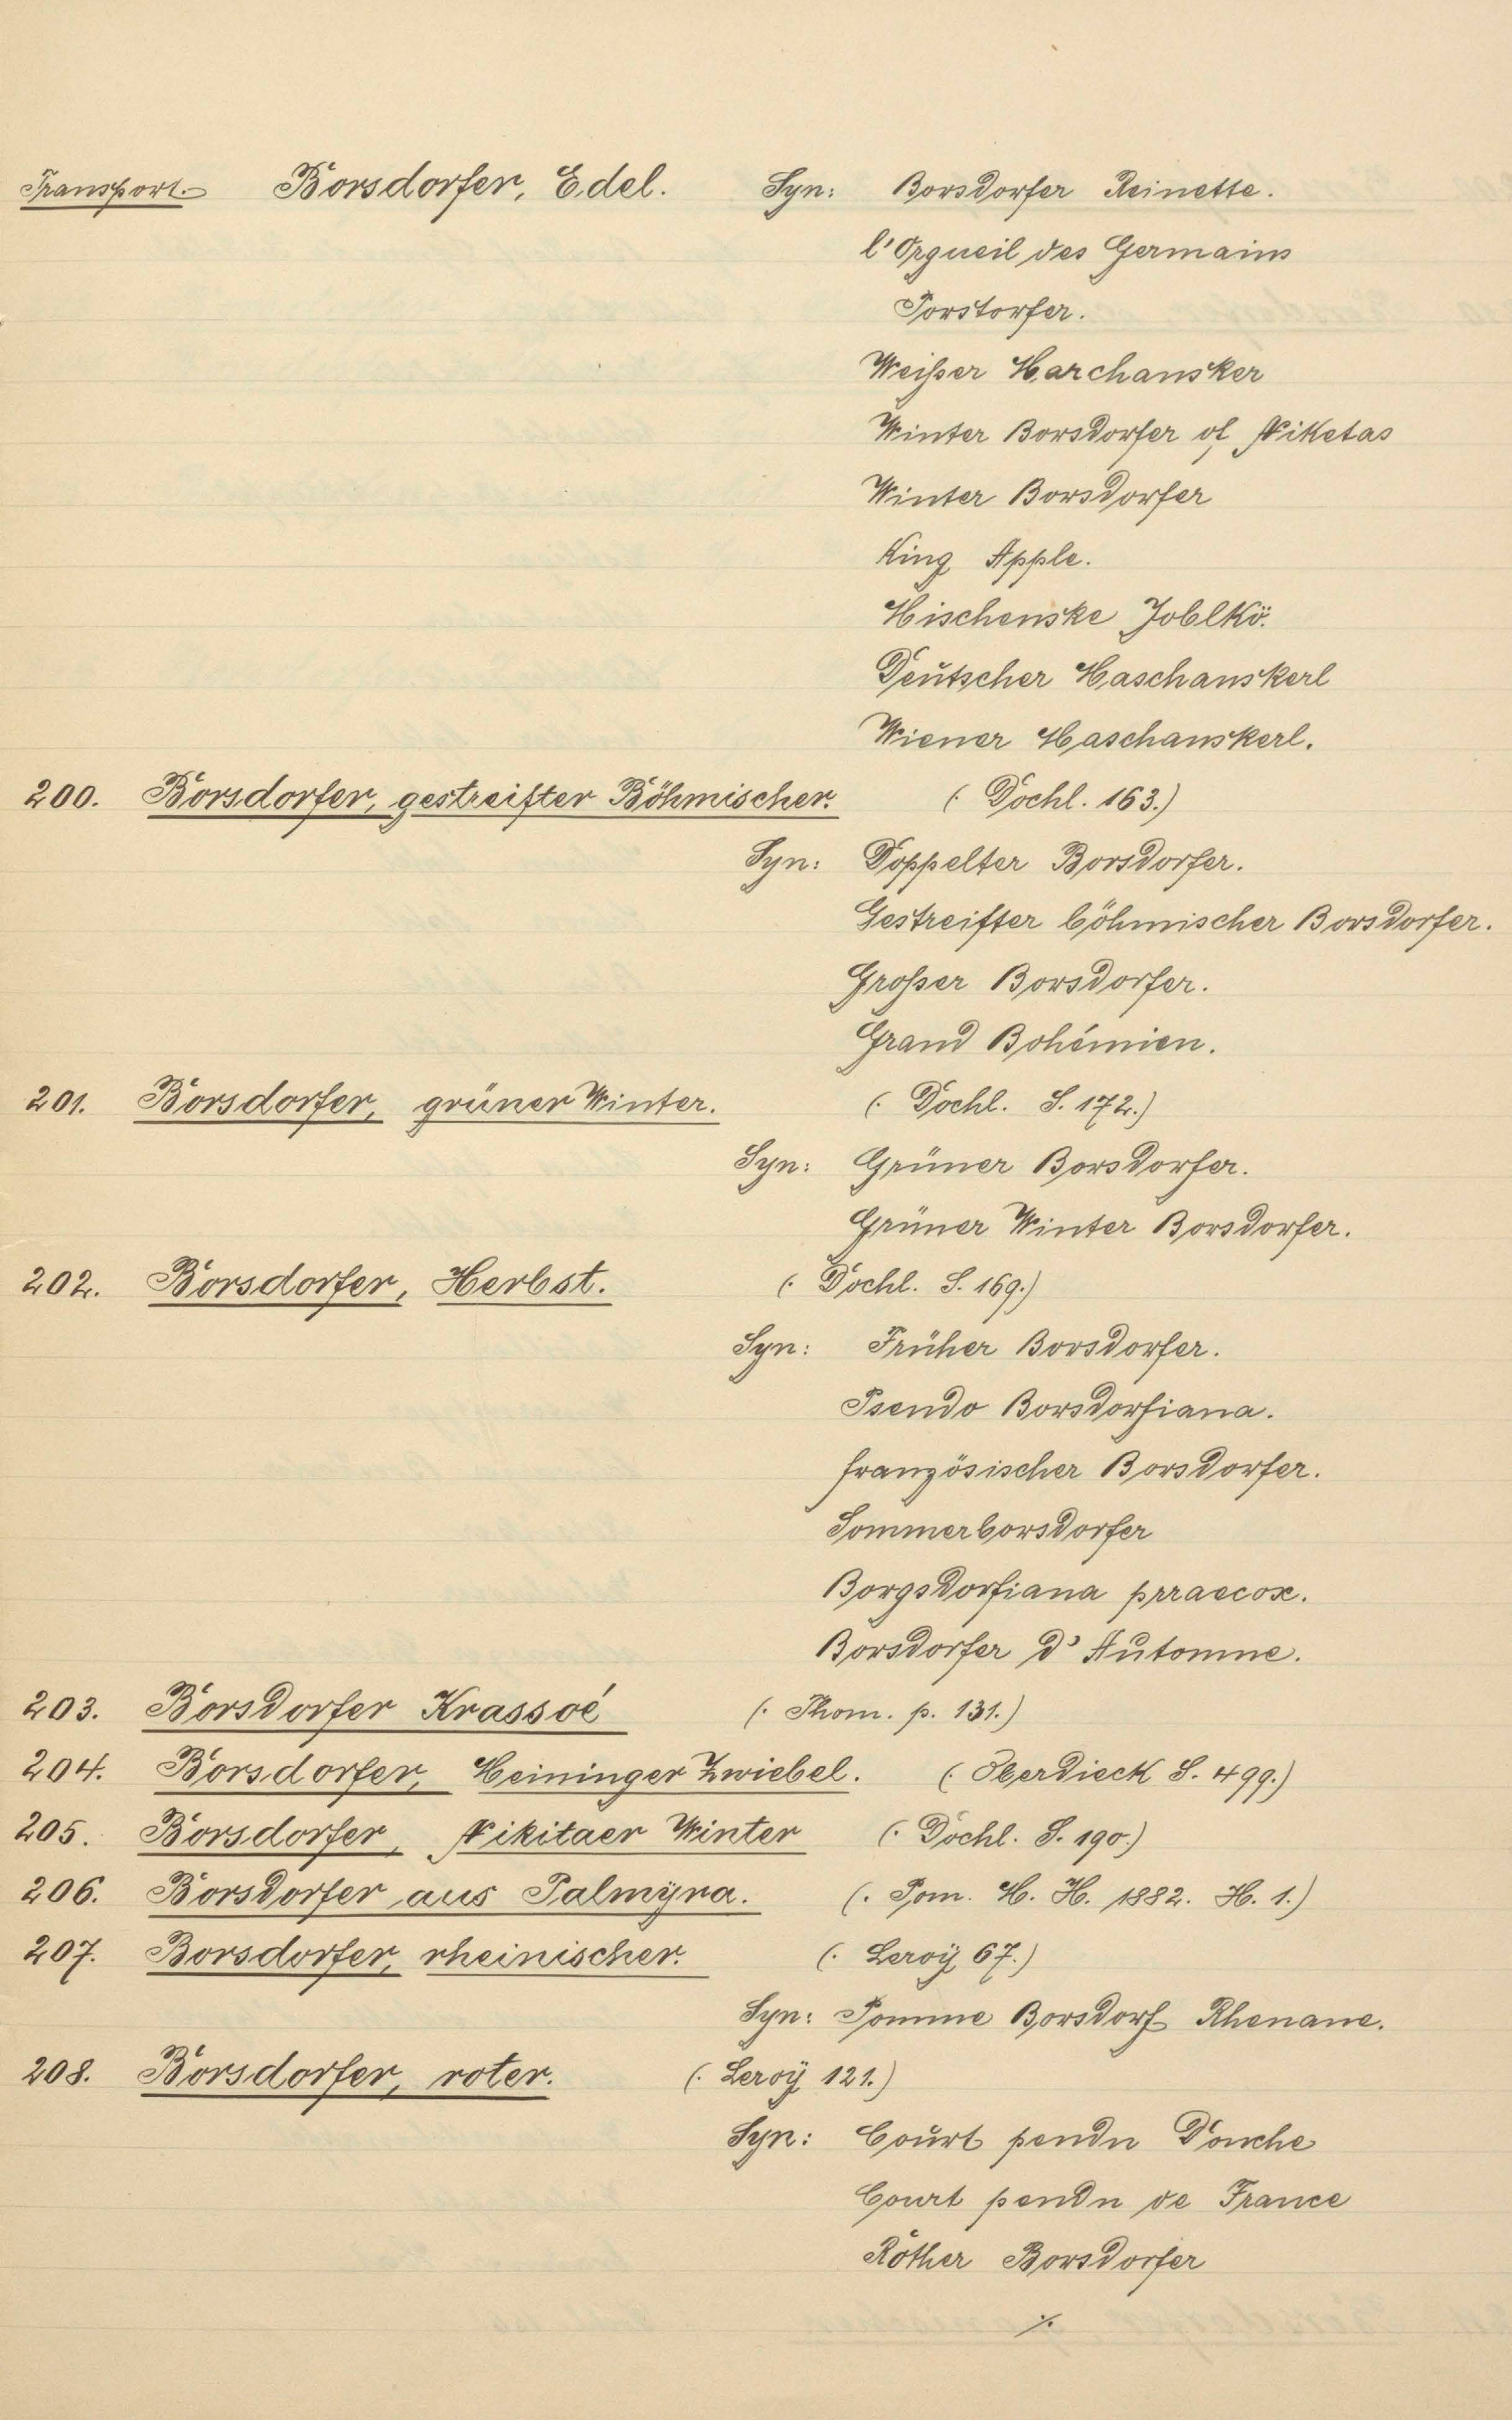 Transport. Borsdorfer, Edel. Syn: Borsdorfer Reinette.
l'Orgueil des Germains
Porstorfer.
Weißer Harchansker
Winter Borsdorfer of Niketas
Winter Borsdorfer
King Apple.
Hischenske Joblkö.
Deutscher Haschanskerl
Wiener Haschanskerl.
200. Borsdorfer, gestreifter Böhmischer. (: Dochl. 163.)
Syn: Doppelter Borsdorfer.
Gestreifter böhmischer Borsdorfer.
Großer Borsdorfer.
Grand Bohémien.
201. Borsdorfer, grüner Winter. (: Dochl. S. 172.)
Syn: Grüner Borsdorfer.
Grüner Winter Borsdorfer.
202. Borsdorfer, Herbst. (: Dochl. S. 169.)
Syn: Früher Borsdorfer.
Pseudo Borsdorfiana.
französischer Borsdorfer.
Sommerborsdorfer
Borgsdorfiana prraecox.
Borsdorfer d'Automne.
203. Borsdorfer Krassoé (: Thom. p. 131.)
204. Borsdorfer, Heininger Zwiebel. (: Oberdieck S. 499.)
205. Borsdorfer, Nikitaer Winter (: Dochl. S. 190.)
206. Borsdorfer aus Palmÿra. (: Pom. H. H. 1882. H. 1.)
207. Borsdorfer, rheinischer. (: Leroÿ 67.)
Syn: Pomme Borsdorf Rhenane.
208. Borsdorfer, roter. (: Leroÿ 121.)
Syn: Court pendu Douche
Court pendu de France
Rother Borsdorfer
./.